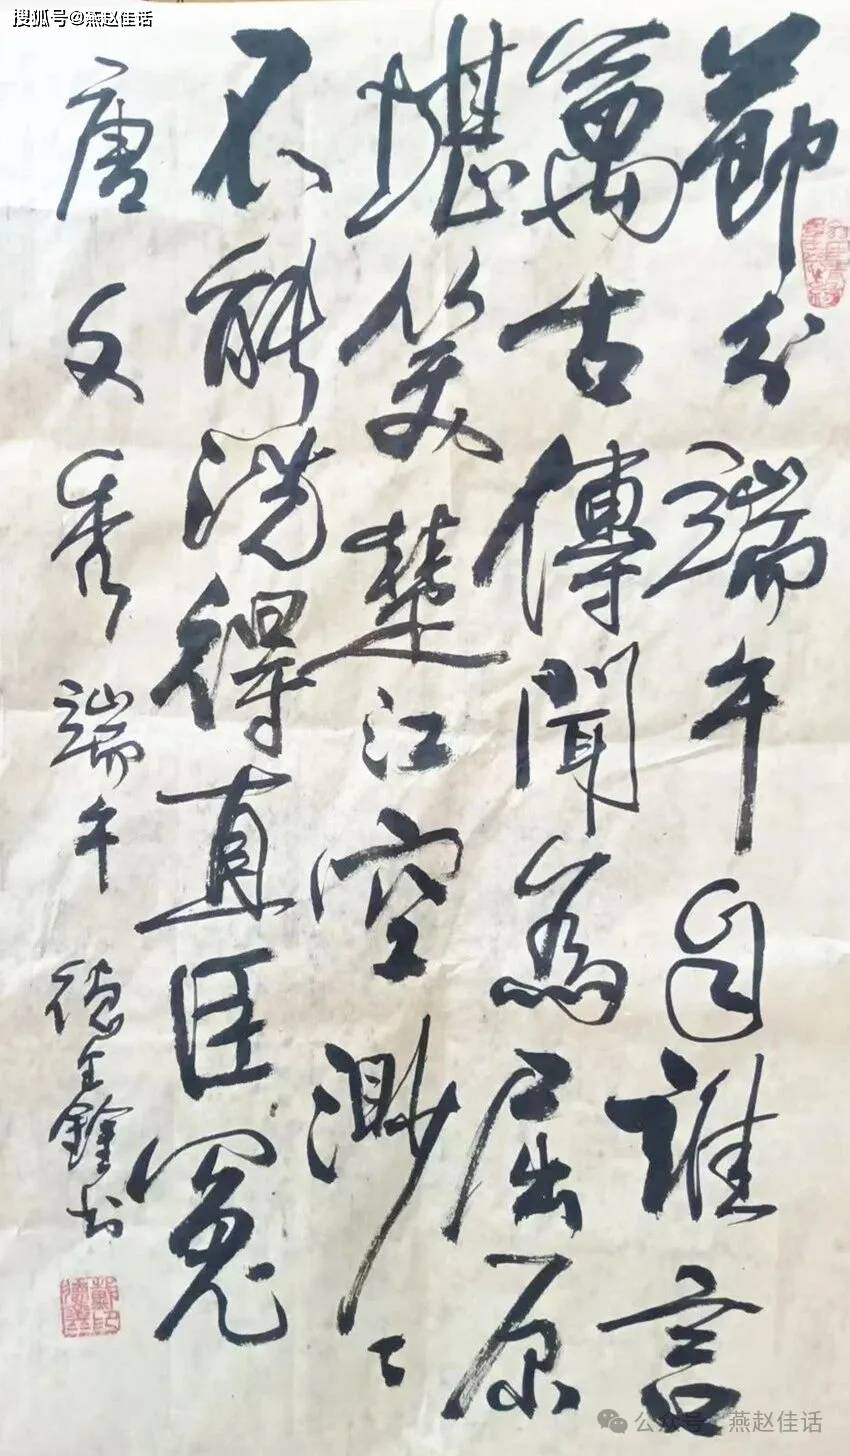 搜狐号@燕赵佳话
節分端午自誰言
萬古傳聞為屈原
堪笑楚江空渺々
不能洗得直臣冤
唐文秀端午 德书
公众号·燕赵佳话